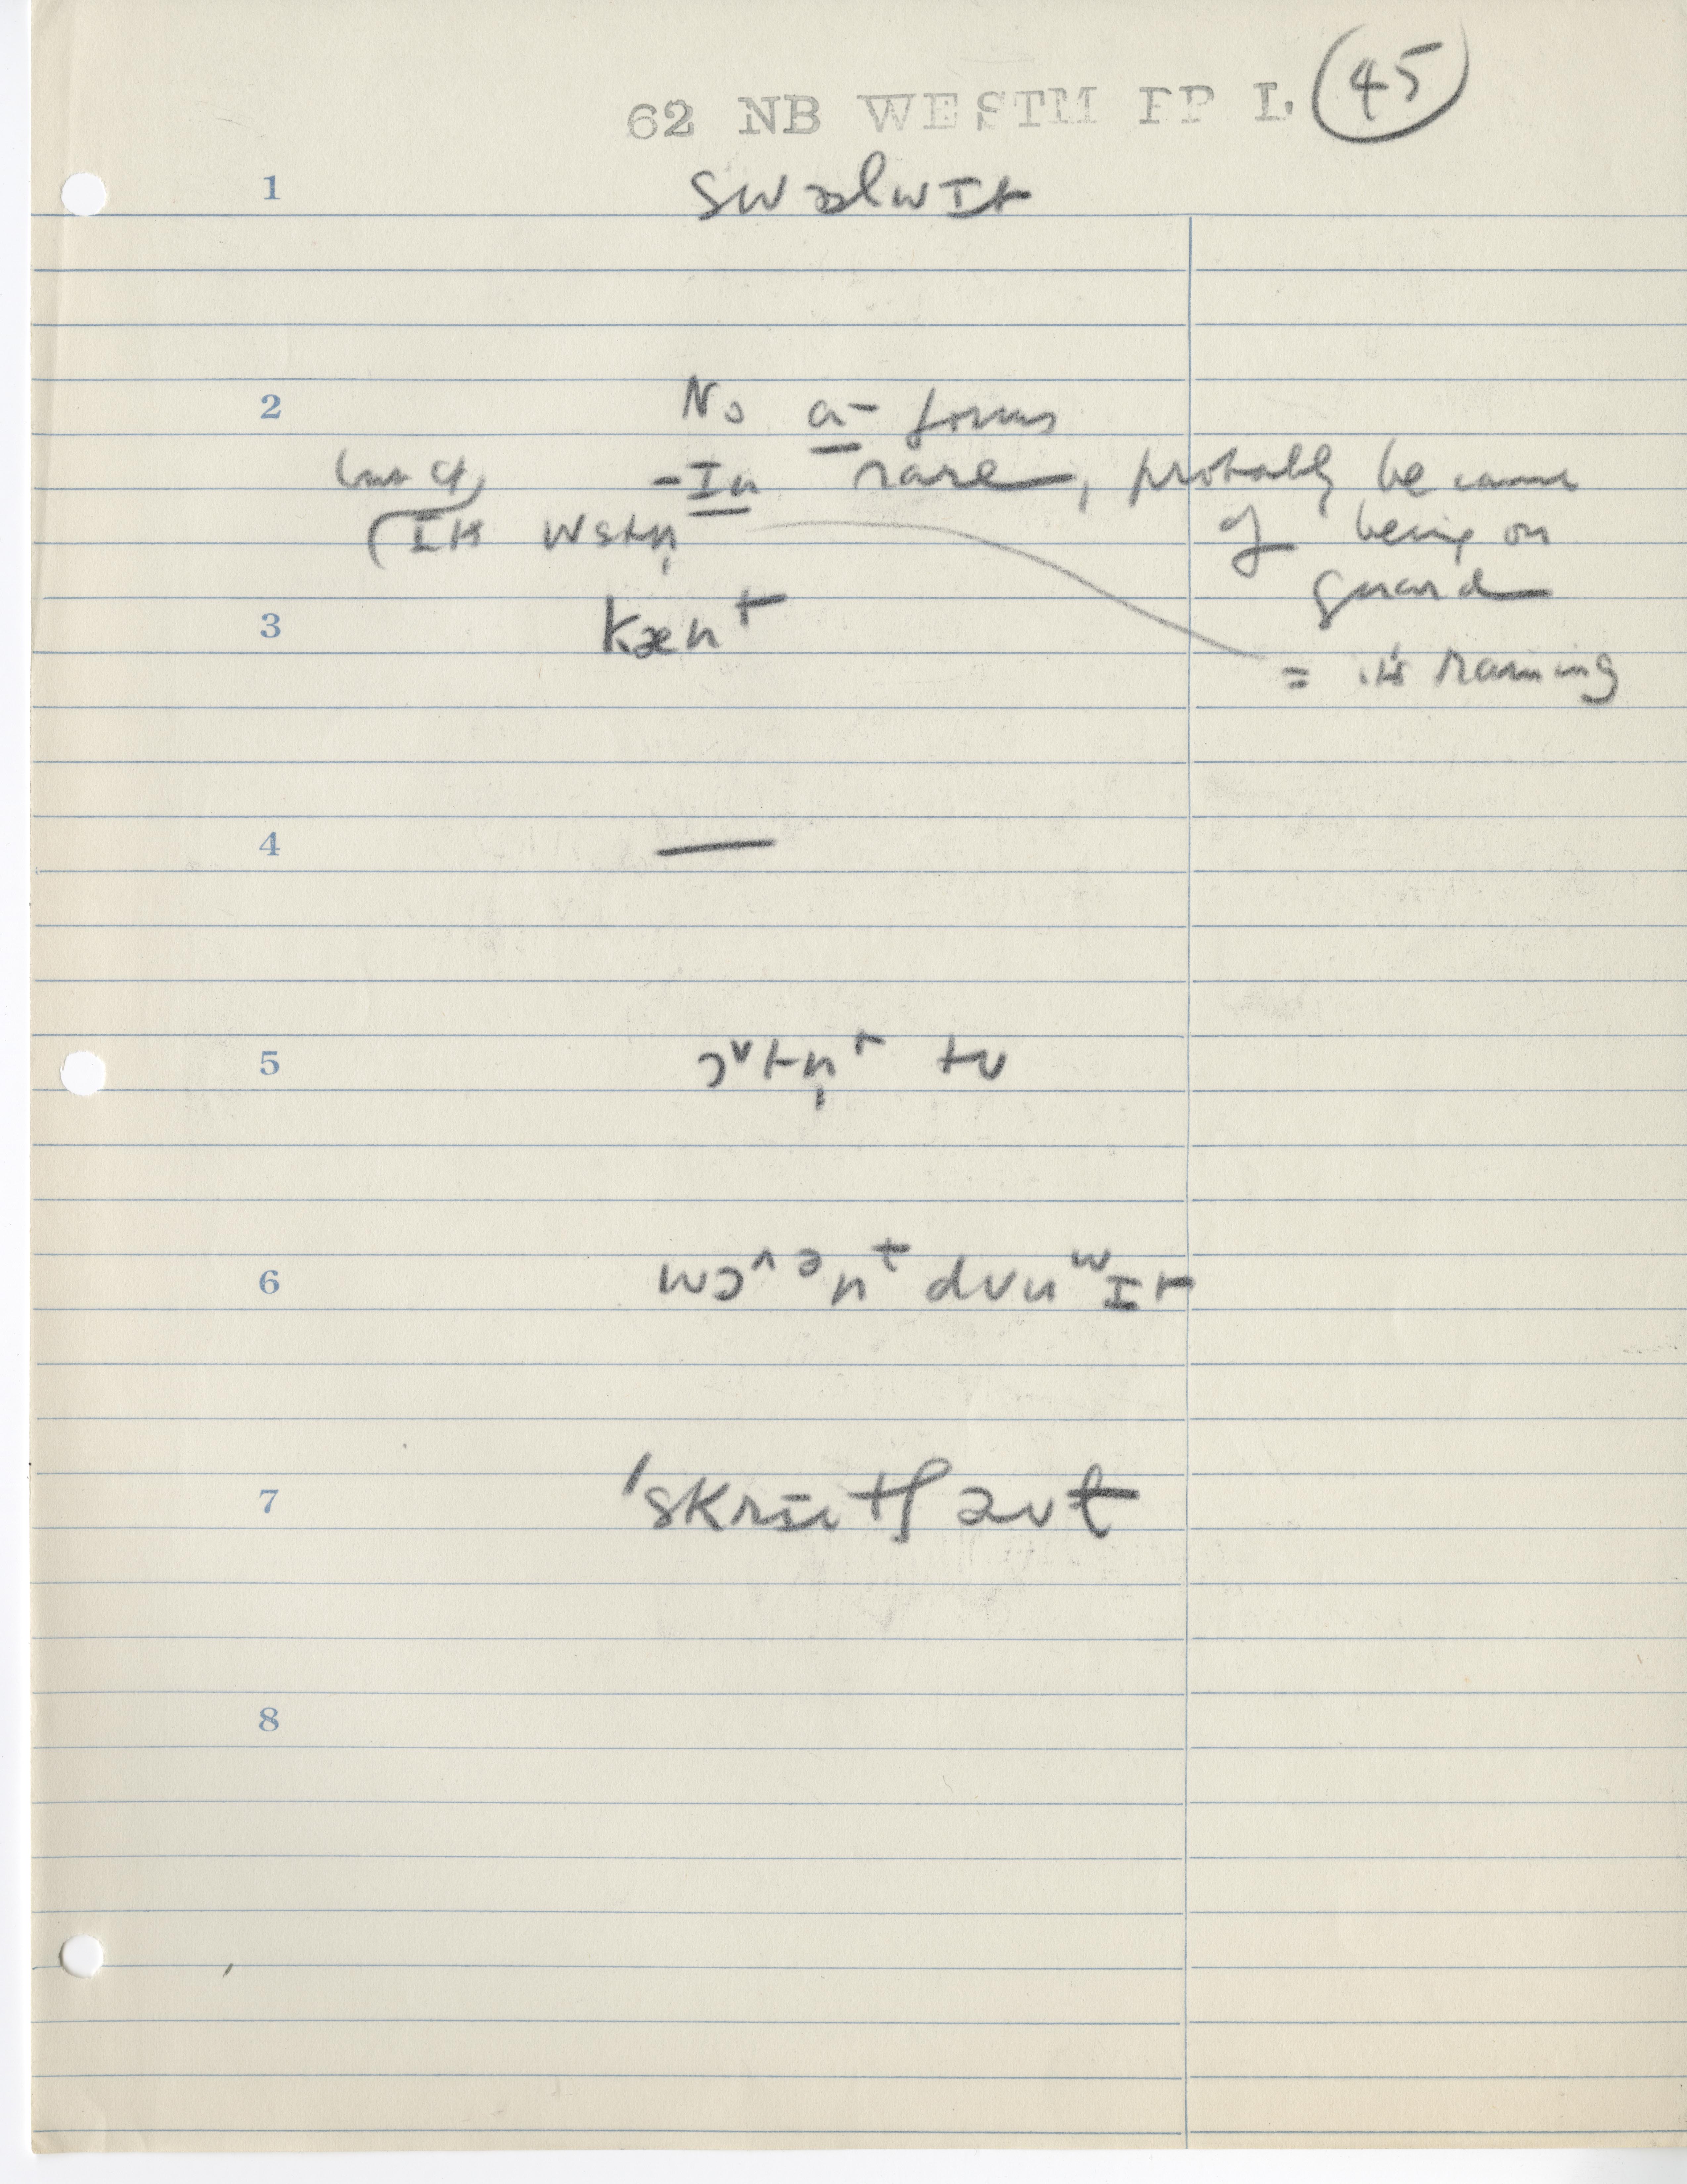 62 NB WESTM FP L 45
1 swɔlwɪt
2 No a- forms
but cf -In rare, probably because
of being on
guard
3 kæn t
= it's raining
4 —
5 ɔ^v tn̩ t tʊ
6 wɔ^ ə n t dʊn w ɪt
7 'skrɪitʃ aʊt
8